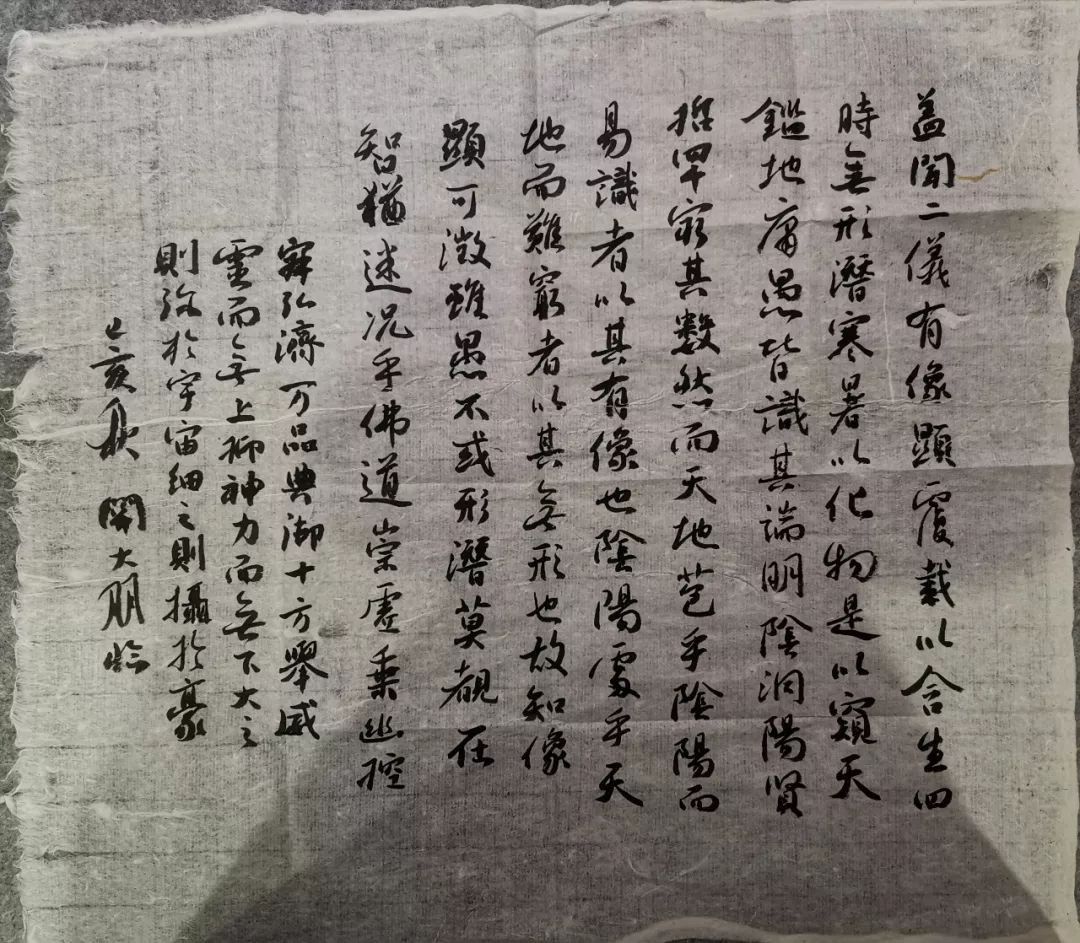 蓋聞二儀有像顯覆載以含生四
時無形潛寒暑以化物是以窺天
鑑地庸愚皆識其端明陰洞陽賢
哲罕窮其數然而天地苞乎陰陽而
易識者以其有像也陰陽處乎天
地而難窮者以其無形也故知像
顯可徵雖愚不或形潛莫覩在
智猶迷况乎佛道崇虛乗幽控
寂弘濟万品典御十方舉威
靈而無上抑神力而無下大之
則彌於宇宙細之則攝於豪
己亥秋 開大朋臨